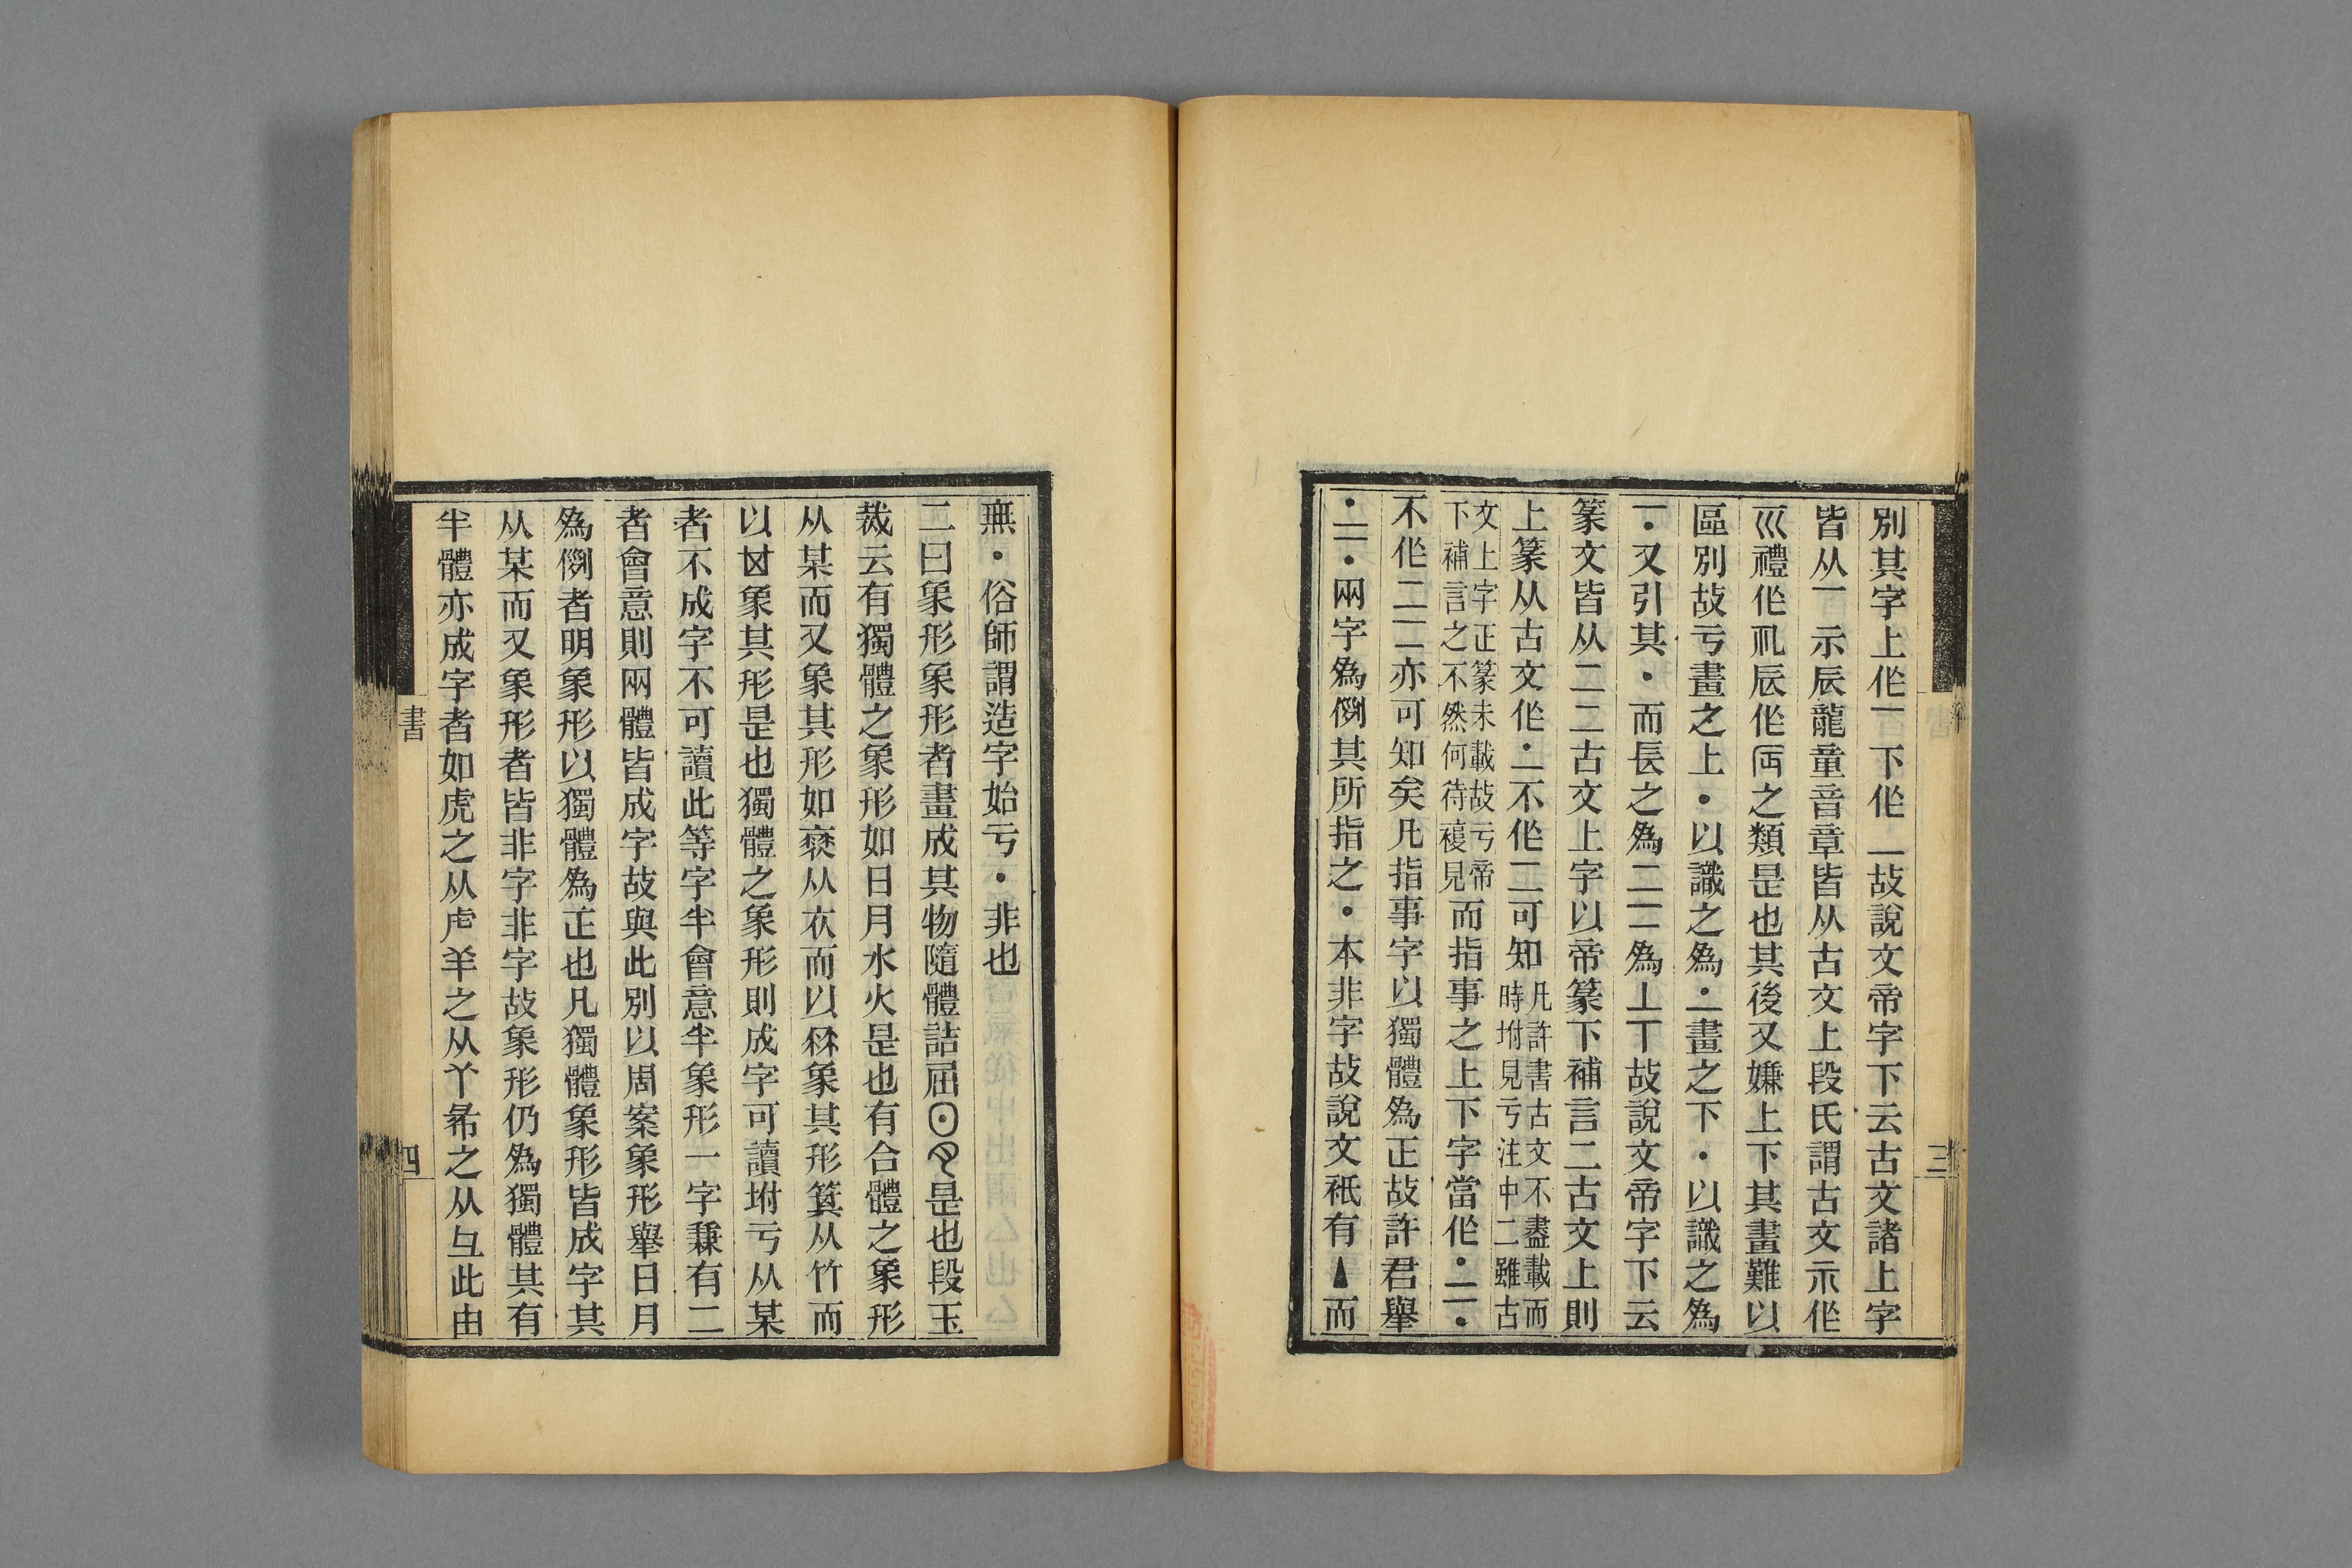 別其字上㐰一下㐰一故說文帝字下云古文諸上字
皆从一示辰龍童音章皆从古文上段氏謂古文示㐰
巛禮㐰𠃞辰㐰㕅之類是也其後又嫌上下其畫難以
區別故亏畫之上·以識之爲·一畫之下·以識之爲
一·又引其·而長之爲二二爲丄丅故說文帝字下云
篆文皆从二二古文上字以帝篆下補言二古文上則
上篆从古文㐰·一不㐰二可知凡許書古文不盡載而
時坿見亏注中二雖古
文上字正篆未載故亏帝
下補言之不然何待䙏見而指事之上下字當㐰·一一·
不㐰二二亦可知矣凡指事字以獨體爲正故許君舉
·一一·兩字爲例其所指之·本非字故說文祇有▲而
三
無·俗師謂造字始亏·非也
二曰象形象形者畫成其物隨體詰屈是也段玉
裁云有獨體之象形如日月水火是也有合體之象形
从某而又象其形如衰从衣而以𠈌象其形箕从竹而
以𠀠象其形是也獨體之象形則成字可讀坿亏从某
者不成字不可讀此等字半會意半象形一字兼有二
者會意則兩體皆成字故與此別以周案象形舉日月
爲例者明象形以獨體爲正也凡獨體象形皆成字其
从某而又象形者皆非字非字故象形仍爲獨體其有
半體亦成字者如虎之从虍羊之从丫㣇之从彑此由
書
四